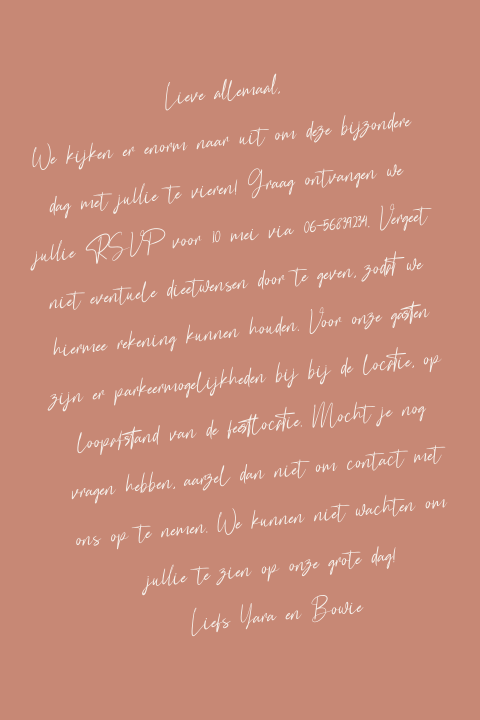 Lieve allemaal,
We kijken er enorm naar uit om deze bijzondere
dag met jullie te vieren! Graag ontvangen we
jullie RSVP voor 10 mei via 06-56834234. Vergeet
niet eventuele dieetwensen door te geven, zodat we
hiermee rekening kunnen houden. Voor onze gasten
zijn er parkeermogelijkheden bij bij de locatie, op
loopafstand van de feestlocatie. Mocht je nog
vragen hebben, aarzel dan niet om contact met
ons op te nemen. We kunnen niet wachten om
jullie te zien op onze grote dag!
Liefs Yara en Bowie